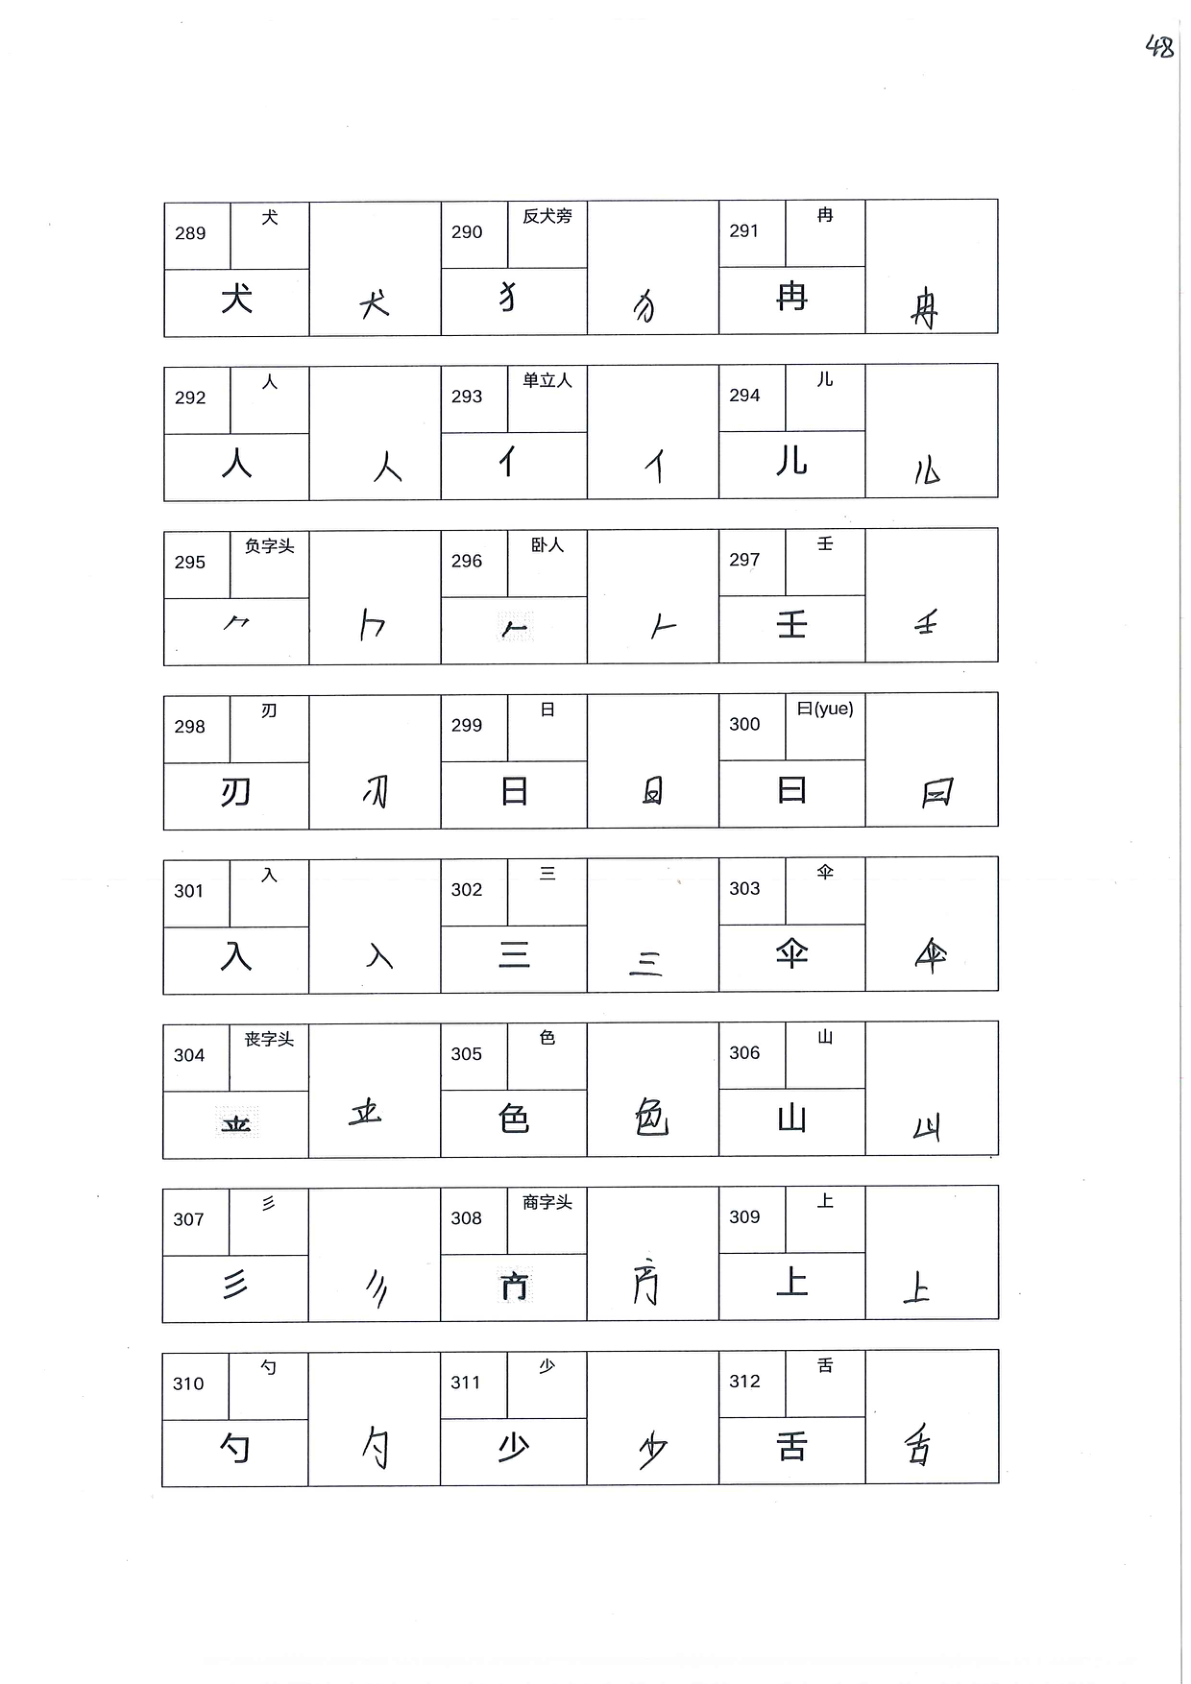 48
289 犬 290 反犬旁 291 冉
犬 犬 犭 犭 冉 冉
292 人 293 单立人 294 儿
人 人 亻 亻 儿 儿
295 负字头 296 卧人 297 壬
⺈ ⺈ 𠂉 𠂉 壬 壬
298 刃 299 日 300 曰(yue)
刃 刃 日 日 曰 曰
301 入 302 三 303 伞
入 入 三 三 伞 伞
304 丧字头 305 色 306 山
色 色 山 山
307 彡 308 商字头 309 上
彡 彡 上 上
310 勺 311 少 312 舌
勺 勺 少 少 舌 舌